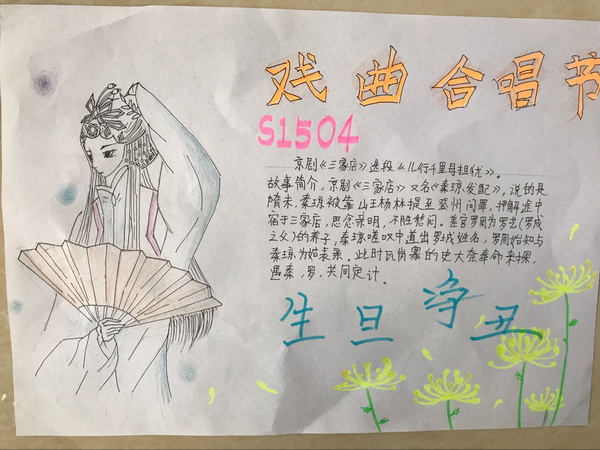 戏曲合唱节
S1504
京剧《三家店》选段《儿行千里母担忧》。
故事简介。京剧《三家店》又名《秦琼发配》，说的是
隋末，秦琼被靠山王杨林提至登州问罪，押解途中
宿于三家店，思念亲朋，不胜愁闷。差官罗周为罗艺(罗成
之父)的养子，秦琼嗟叹中道出罗成姓名，罗周始知与
秦琼为姑表亲。此时瓦岗寨的史大奈奉命来探，
遇秦，罗，共同定计。
生旦净丑